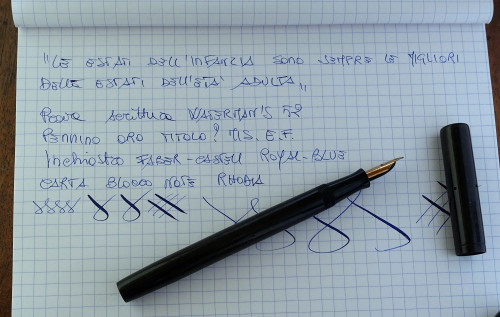 "LE ESTATI DELL'INFANZIA SONO SEMPRE LE MIGLIORI
DELLE ESTATI DELL'ETA' ADULTA"
Prova scrittura WATERMAN'S 52
PENNINO ORO TITOLO? MIS. E.F.
Inchiostro FABER-CASTELL ROYAL-BLUE
CARTA BLOCCO NOTE RHODIA